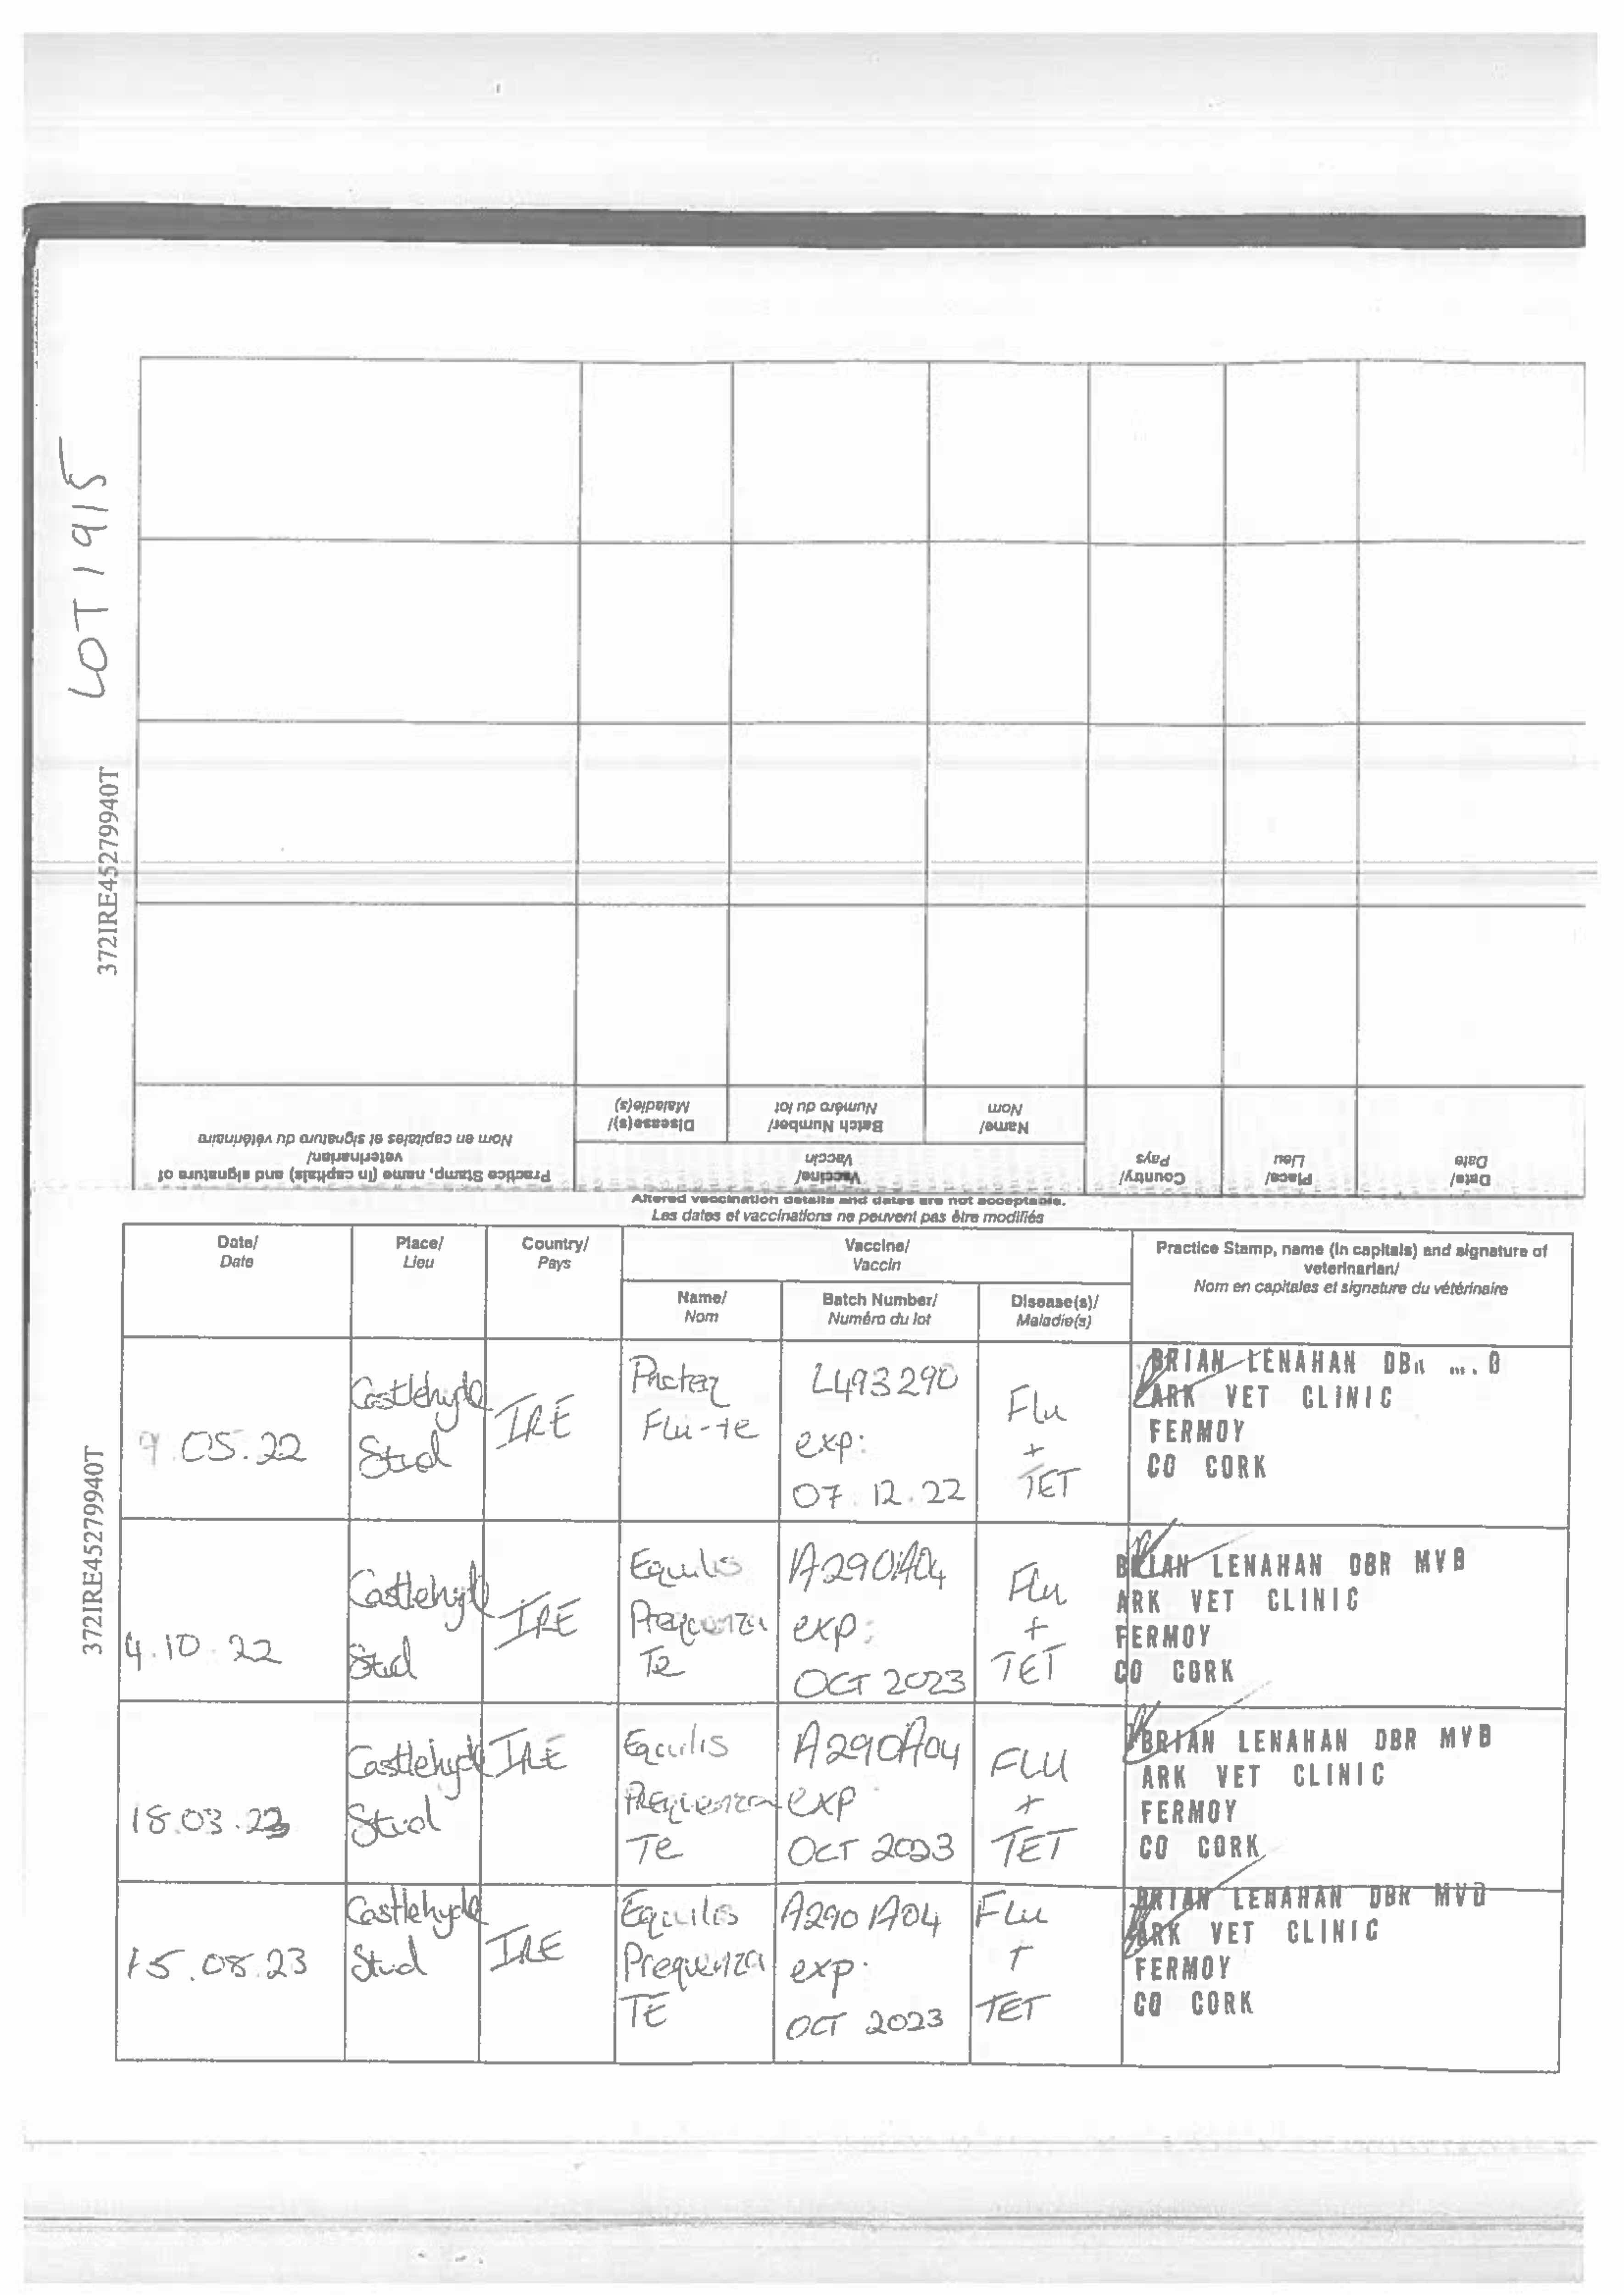 LOT 1915
372IRE45279940T
Practice Stamp, name (in capitals) and signature of
veterinarian/
Nom en capitales et signature du vétérinaire
Vaccine/
Vaccin
Disease(s)/
Maladie(s)
Batch Number/
Numéro du lot
Name/
Nom
Country/
Pays
Place/
Lieu
Date/
Date
Altered vaccination details and dates are not acceptable.
Les dates et vaccinations ne peuvent pas être modifiés
372IRE45279940T
Date/
Date
Place/
Lieu
Country/
Pays
Vaccine/
Vaccin
Name/
Nom
Batch Number/
Numéro du lot
Disease(s)/
Maladie(s)
Practice Stamp, name (in capitals) and signature of
veterinarian/
Nom en capitales et signature du vétérinaire
.05.22
Castlehyde
Stud
IRE
Flu-te
L493290
exp:
07.12.22
Flu
+
TET
BRIAN LENAHAN
ARK VET CLINIC
FERMOY
CO CORK
4.10.22
Castlehyd
Stud
IRE
Equilis
Prequenza
Te
A290A04
exp:
OCT 2023
Flu
+
TET
BRIAN LENAHAN DBR MVB
ARK VET CLINIC
FERMOY
CO CORK
18.03.23
Castlehyde
Stud
IRE
Equilis
Prequenza
Te
A290A04
exp
OCT 2023
FLU
+
TET
BRIAN LENAHAN DBR MVB
ARK VET CLINIC
FERMOY
CO CORK
15.08.23
Castlehyde
Stud
IRE
Equilis
Prequenza
TE
A290A04
exp.
OCT 2023
Flu
+
TET
BRIAN LENAHAN DBR MVB
ARK VET CLINIC
FERMOY
CO CORK